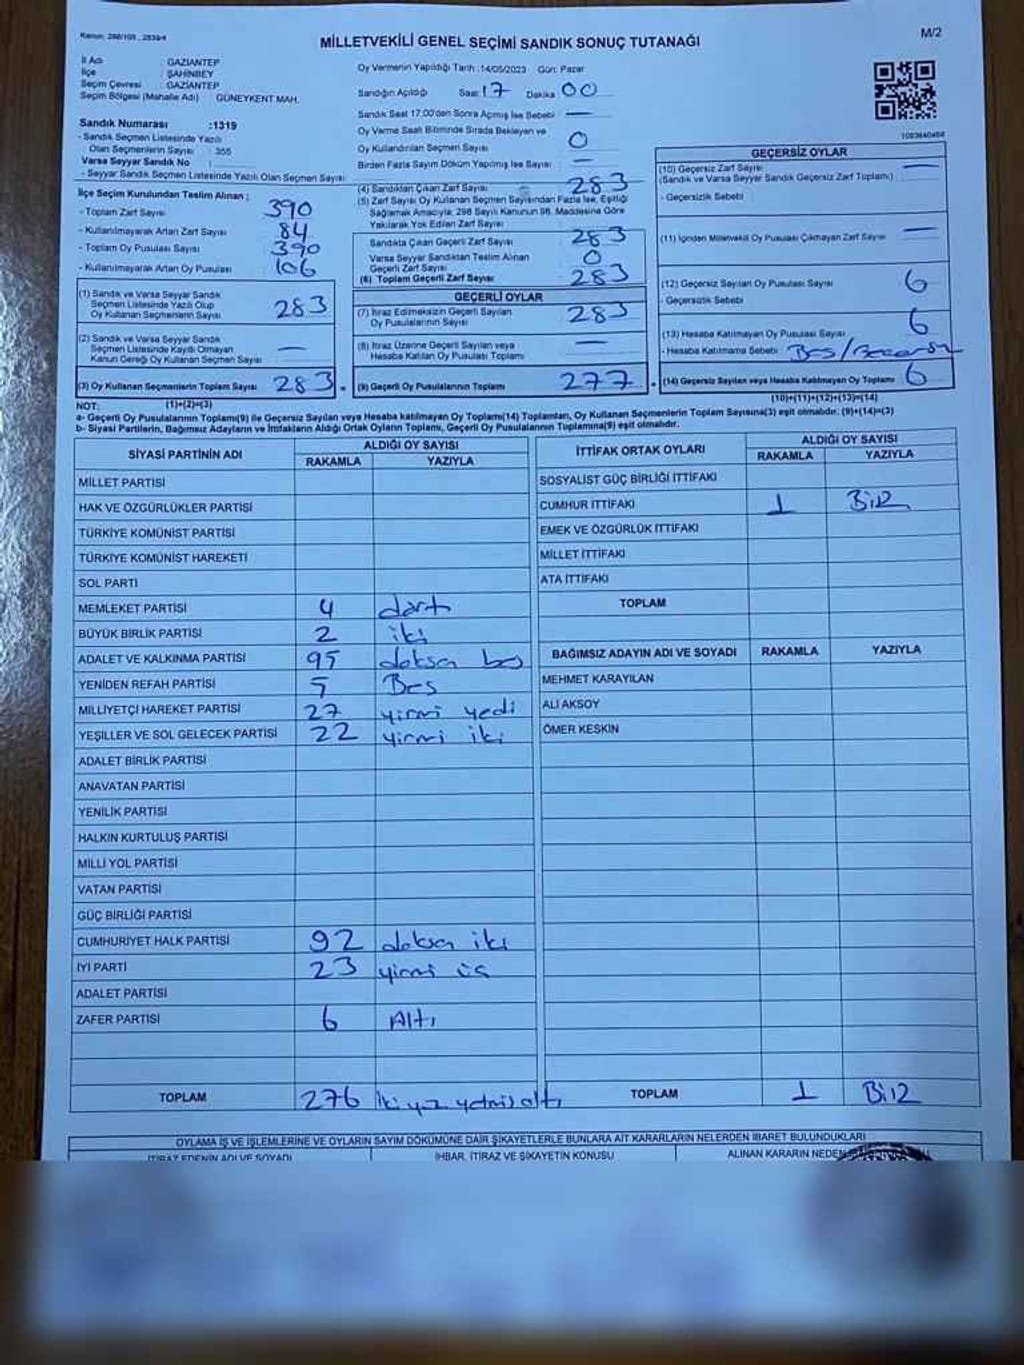 Kanun: 298/105 , 2839/4
MİLLETVEKİLİ GENEL SEÇİMİ SANDIK SONUÇ TUTANAĞI
M/2
İl Adı : GAZİANTEP
İlçe : ŞAHİNBEY
Seçim Çevresi : GAZİANTEP
Seçim Bölgesi (Mahalle Adı) GÜNEYKENT MAH.
Oy Vermenin Yapıldığı Tarih :14/05/2023 Gün: Pazar
Sandığın Açıldığı Saat 17 Dakika 00
Sandık Saat 17.00'den Sonra Açmış İse Sebebi —
Oy Verme Saati Bitiminde Sırada Bekleyen ve
Oy Kullandırılan Seçmen Sayısı 0
Birden Fazla Sayım Döküm Yapılmış İse Sayısı —
Sandık Numarası :1319
- Sandık Seçmen Listesinde Yazılı
Olan Seçmenlerin Sayısı : 355
Varsa Seyyar Sandık No
- Seyyar Sandık Seçmen Listesinde Yazılı Olan Seçmen Sayısı
İlçe Seçim Kurulundan Teslim Alınan :
- Toplam Zarf Sayısı 390
- Kullanılmayarak Artan Zarf Sayısı 84
- Toplam Oy Pusulası Sayısı 390
- Kullanılmayarak Artan Oy Pusulası 106
(1) Sandık ve Varsa Seyyar Sandık
Seçmen Listesinde Yazılı Olup
Oy Kullanan Seçmenlerin Sayısı 283
(2) Sandık ve Varsa Seyyar Sandık
Seçmen Listesinde Kaydı Olmayan
Kanun Gereği Oy Kullanan Seçmen Sayısı —
(3) Oy Kullanan Seçmenlerin Toplam Sayısı 283
(1)+(2)=(3)
(4) Sandıktan Çıkan Zarf Sayısı 283
(5) Zarf Sayısı Oy Kullanan Seçmen Sayısından Fazla İse, Eşitliği
Sağlamak Amacıyla, 298 Sayılı Kanunun 98. Maddesine Göre
Yakılarak Yok Edilen Zarf Sayısı
Sandıkta Çıkan Geçerli Zarf Sayısı 283
Varsa Seyyar Sandıktan Teslim Alınan
Geçerli Zarf Sayısı 0
(6) Toplam Geçerli Zarf Sayısı 283
GEÇERLİ OYLAR
(7) İtiraz Edilmeksizin Geçerli Sayılan
Oy Pusulalarının Sayısı 283
(8) İtiraz Üzerine Geçerli Sayılan veya
Hesaba Katılan Oy Pusulası Toplamı —
(9) Geçerli Oy Pusulalarının Toplamı 277
1003640468
GEÇERSİZ OYLAR
(10) Geçersiz Zarf Sayısı —
(Sandık ve Varsa Seyyar Sandık Geçersiz Zarf Toplamı)
- Geçersizlik Sebebi
(11) İçinden Milletvekili Oy Pusulası Çıkmayan Zarf Sayısı —
(12) Geçersiz Sayılan Oy Pusulası Sayısı 6
- Geçersizlik Sebebi
(13) Hesaba Katılmayan Oy Pusulası Sayısı 6
- Hesaba Katılmama Sebebi
(14) Geçersiz Sayılan veya Hesaba Katılmayan Oy Toplamı 6
(10)+(11)+(12)+(13)=(14)
NOT:
a- Geçerli Oy Pusulalarının Toplamı(9) ile Geçersiz Sayılan veya Hesaba katılmayan Oy Toplamı(14) Toplamları, Oy Kullanan Seçmenlerin Toplam Sayısına(3) eşit olmalıdır. (9)+(14)=(3)
b- Siyasi Partilerin, Bağımsız Adayların ve İttifakların Aldığı Ortak Oyların Toplamı, Geçerli Oy Pusulalarının Toplamına(9) eşit olmalıdır.
SİYASİ PARTİNİN ADI ALDIĞI OY SAYISI
RAKAMLA YAZIYLA
MİLLET PARTİSİ
HAK VE ÖZGÜRLÜKLER PARTİSİ
TÜRKİYE KOMÜNİST PARTİSİ
TÜRKİYE KOMÜNİST HAREKETİ
SOL PARTİ
MEMLEKET PARTİSİ 4 dört
BÜYÜK BİRLİK PARTİSİ 2 iki
ADALET VE KALKINMA PARTİSİ 95 doksan beş
YENİDEN REFAH PARTİSİ 5 Beş
MİLLİYETÇİ HAREKET PARTİSİ 27 yirmi yedi
YEŞİLLER VE SOL GELECEK PARTİSİ 22 yirmi iki
ADALET BİRLİK PARTİSİ
ANAVATAN PARTİSİ
YENİLİK PARTİSİ
HALKIN KURTULUŞ PARTİSİ
MİLLİ YOL PARTİSİ
VATAN PARTİSİ
GÜÇ BİRLİĞİ PARTİSİ
CUMHURİYET HALK PARTİSİ 92 doksan iki
İYİ PARTİ 23 yirmi üç
ADALET PARTİSİ
ZAFER PARTİSİ 6 Altı
TOPLAM 276 iki yüz yetmiş altı
İTTİFAK ORTAK OYLARI ALDIĞI OY SAYISI
RAKAMLA YAZIYLA
SOSYALİST GÜÇ BİRLİĞİ İTTİFAKI
CUMHUR İTTİFAKI 1 BİR
EMEK VE ÖZGÜRLÜK İTTİFAKI
MİLLET İTTİFAKI
ATA İTTİFAKI
TOPLAM
BAĞIMSIZ ADAYIN ADI VE SOYADI RAKAMLA YAZIYLA
MEHMET KARAYILAN
ALİ AKSOY
ÖMER KESKİN
TOPLAM 1 BİR
OYLAMA İŞ VE İŞLEMLERİNE VE OYLARIN SAYIM DÖKÜMÜNE DAİR ŞİKAYETLERLE BUNLARA AİT KARARLARIN NELERDEN İBARET BULUNDUKLARI
İTİRAZ EDENİN ADI VE SOYADI İHBAR, İTİRAZ VE ŞİKAYETİN KONUSU ALINAN KARARIN